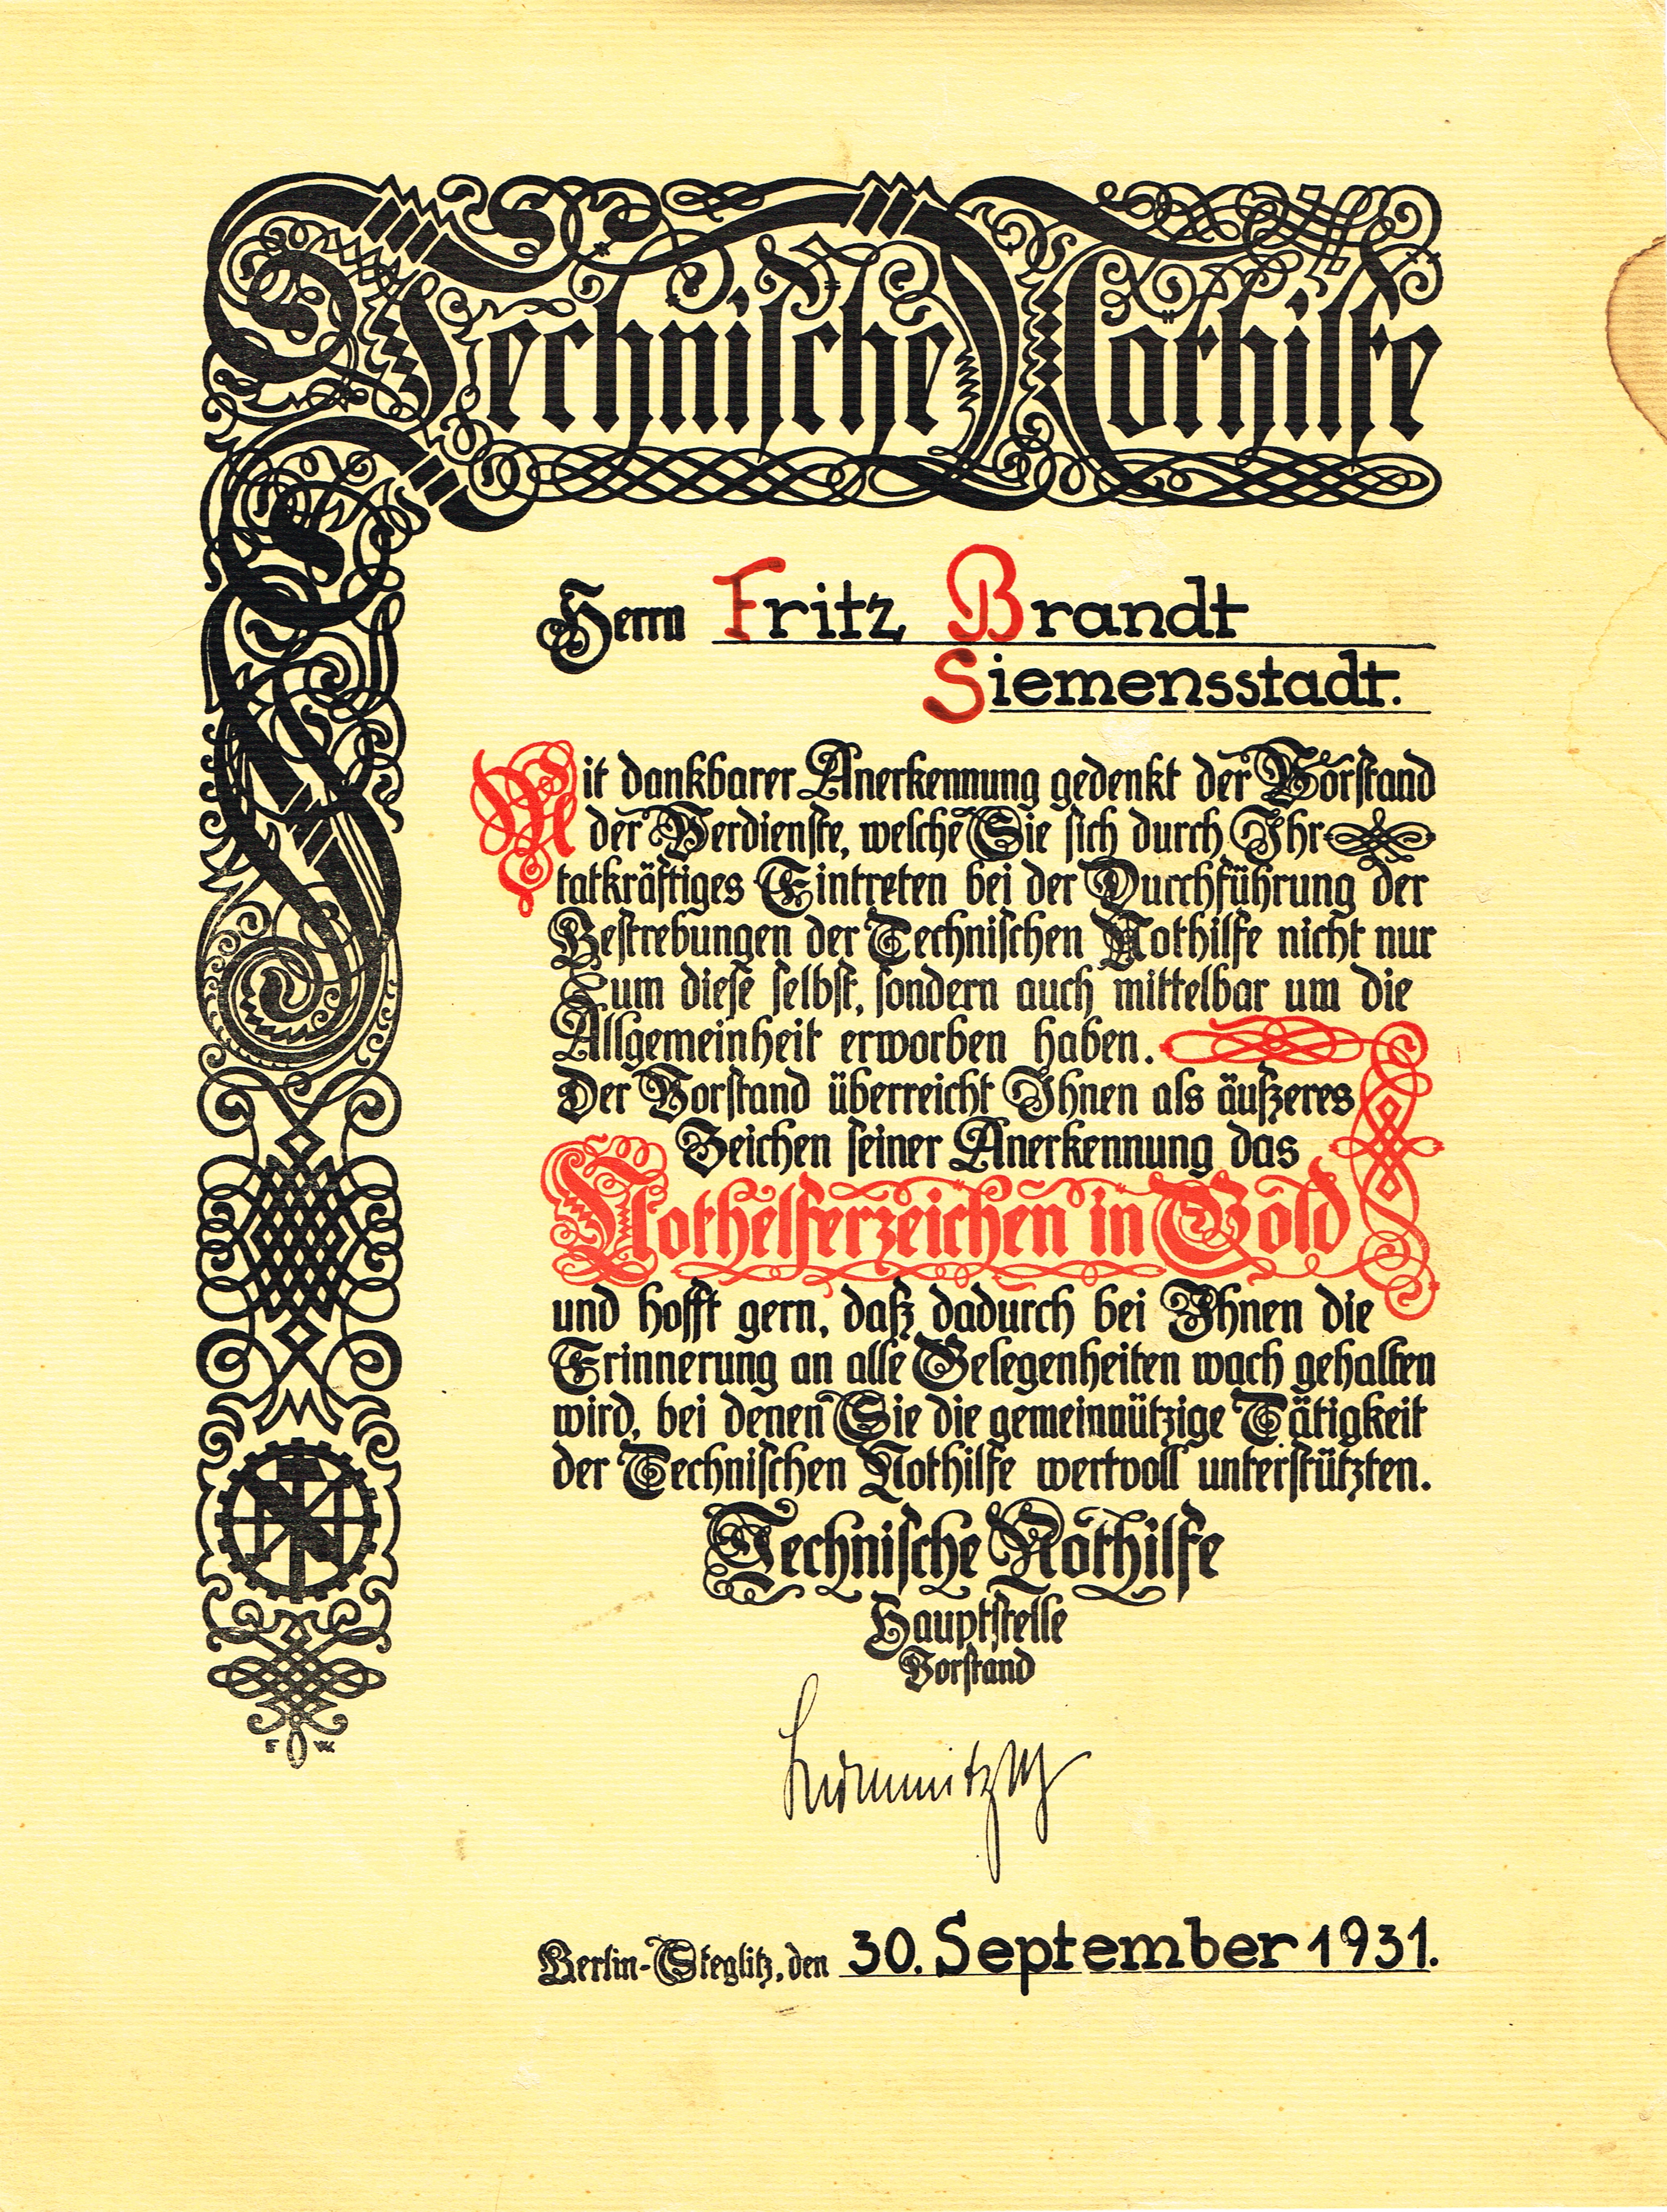 Technische Nothilfe
Herrn Fritz Brandt
Siemensstadt.
Mit dankbarer Anerkennung gedenkt der Vorstand
der Verdienste, welche Sie sich durch Ihr
tatkräftiges Eintreten bei der Durchführung der
Bestrebungen der Technischen Nothilfe nicht nur
um diese selbst, sondern auch mittelbar um die
Allgemeinheit erworben haben.
Der Vorstand überreicht Ihnen als äußeres
Zeichen seiner Anerkennung das
Nothelferzeichen in Gold
und hofft gern, daß dadurch bei Ihnen die
Erinnerung an alle Gelegenheiten wach gehalten
wird, bei denen Sie die gemeinnützige Tätigkeit
der Technischen Nothilfe wertvoll unterstützten.
Technische Nothilfe
Hauptstelle
Vorstand
Berlin-Steglitz, den 30. September 1931.